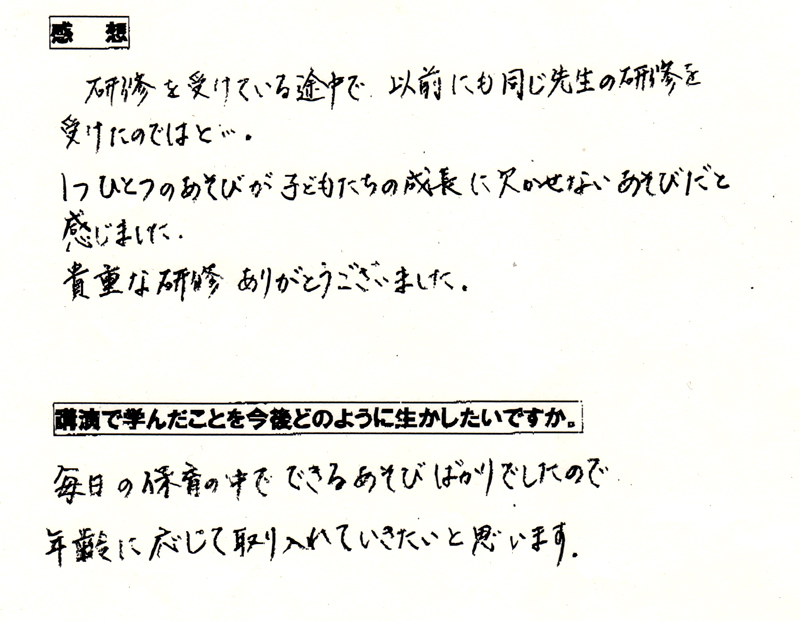 感 想
研修を受けている途中で 以前にも同じ先生の研修を
受けたのではと…。
1つひとつのあそびが子どもたちの成長に欠かせないあそびだと
感じました。
貴重な研修 ありがとうございました。
講演で学んだことを今後どのように生かしたいですか。
毎日の保育の中で できるあそびばかりでしたので
年齢に応じて取り入れていきたいと思います。